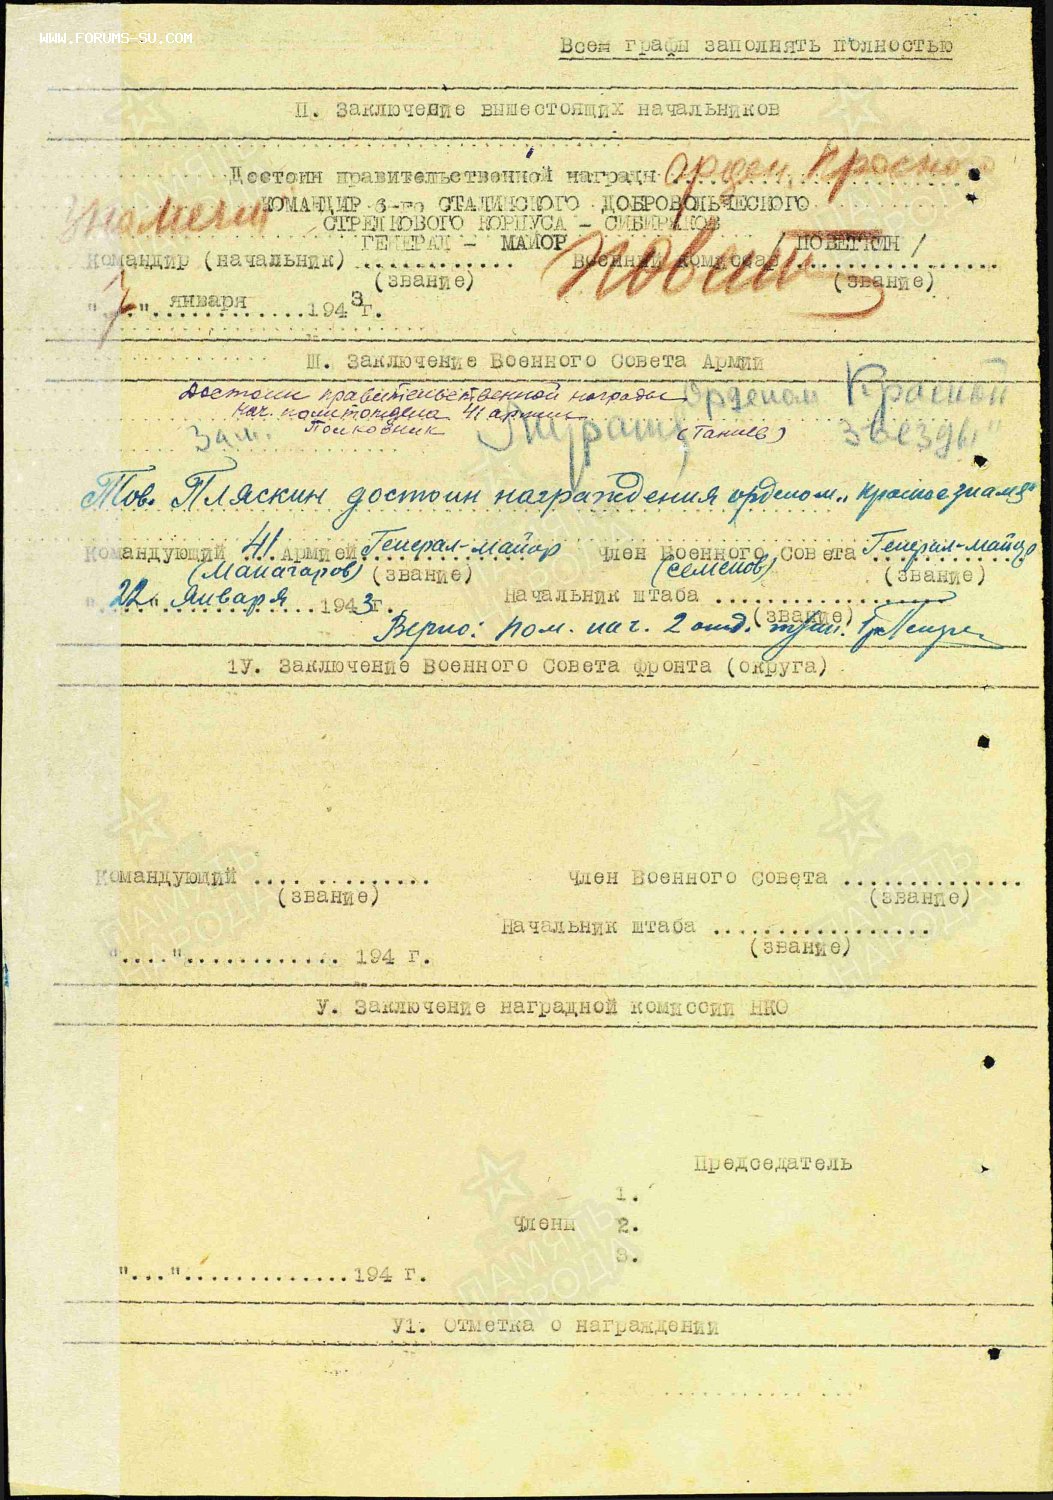 WWW.FORUMS-SU.COM
Всем графы заполнять полностью
П. Заключение вышестоящих начальников
Достоин правительственной награды орден Красного
Знамени
КОМАНДИР 6-го СТАЛИНСКОГО ДОБРОВОЛЬЧЕСКОГО
СТРЕЛКОВОГО КОРПУСА – СИБИРЯКОВ
ГЕНЕРАЛ – МАЙОР / ПОВЕТКИН /
Командир (начальник) ............ Военный комиссар ................
(звание) (звание)
"7" января 1943 г.
Ш. Заключение Военного Совета Армии
Достоин правительственной награды Орденом Красной
Нач. политотдела 41 армии Звезды"
Зам. Полковник (Ганиев)
Тов. Пляскин достоин награждения орденом „Красное знамя"
Командующий 41 Армией Генерал-майор Член Военного Совета Генерал-майор
(Манагаров) (звание) (Семенов) (звание)
"22" Января 1943 г. Начальник штаба ...................
(звание)
Верно: Пом. нач. 2 отд.
1У. Заключение Военного Совета фронта (округа)
Командующий .... ......... Член Военного Совета ..............
(звание) (звание)
Начальник штаба ..................
(звание)
"...."............ 194 г.
У. Заключение наградной комиссии НКО
Председатель
1.
Члены 2.
3.
"..."............. 194 г.
У1. Отметка о награждении
ПАМЯТЬ НАРОДА